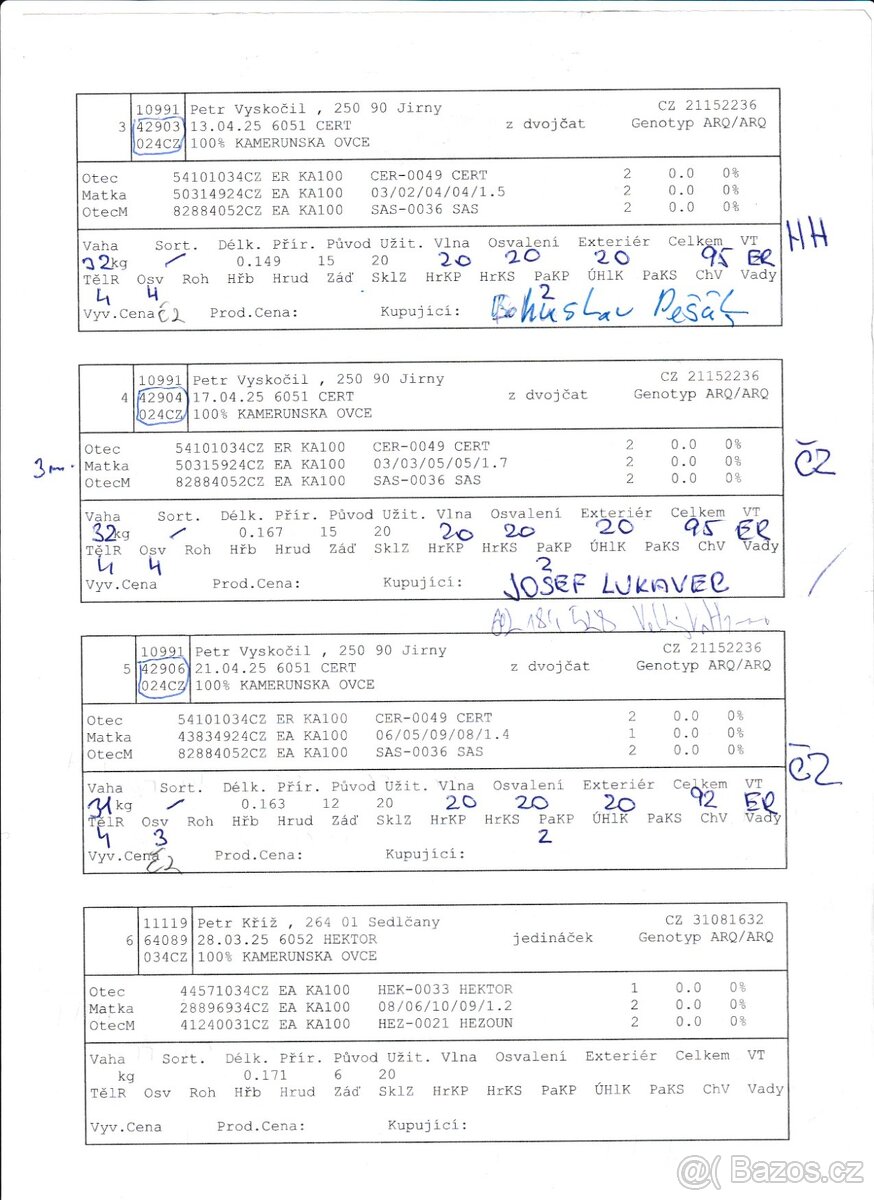 10991 Petr Vyskočil , 250 90 Jirny CZ 21152236
3 42903 13.04.25 6051 CERT z dvojčat Genotyp ARQ/ARQ
024CZ 100% KAMERUNSKA OVCE
Otec 54101034CZ ER KA100 CER-0049 CERT 2 0.0 0%
Matka 50314924CZ EA KA100 03/02/04/04/1.5 2 0.0 0%
OtecM 82884052CZ EA KA100 SAS-0036 SAS 2 0.0 0%
Vaha Sort. Délk. Přír. Původ Užit. Vlna Osvalení Exteriér Celkem VT HH
32kg / 0.149 15 20 20 20 20 95 ER
TělR Osv Roh Hřb Hrud Záď SklZ HrKP HrKS PaKP ÚHlK PaKS ChV Vady
4 4 2
Vyv.Cena ČZ Prod.Cena: Kupující: Bohuslav Pešák
10991 Petr Vyskočil , 250 90 Jirny CZ 21152236
4 42904 17.04.25 6051 CERT z dvojčat Genotyp ARQ/ARQ
024CZ 100% KAMERUNSKA OVCE
Otec 54101034CZ ER KA100 CER-0049 CERT 2 0.0 0%
Matka 50315924CZ EA KA100 03/03/05/05/1.7 2 0.0 0% ČZ
OtecM 82884052CZ EA KA100 SAS-0036 SAS 2 0.0 0%
Vaha Sort. Délk. Přír. Původ Užit. Vlna Osvalení Exteriér Celkem VT
32kg / 0.167 15 20 20 20 20 95 ER
TělR Osv Roh Hřb Hrud Záď SklZ HrKP HrKS PaKP ÚHlK PaKS ChV Vady
4 4 2
Vyv.Cena Prod.Cena: Kupující: JOSEF LUKAVEC
10991 Petr Vyskočil , 250 90 Jirny CZ 21152236
5 42906 21.04.25 6051 CERT z dvojčat Genotyp ARQ/ARQ
024CZ 100% KAMERUNSKA OVCE
Otec 54101034CZ ER KA100 CER-0049 CERT 2 0.0 0%
Matka 43834924CZ EA KA100 06/05/09/08/1.4 1 0.0 0%
OtecM 82884052CZ EA KA100 SAS-0036 SAS 2 0.0 0%
Vaha Sort. Délk. Přír. Původ Užit. Vlna Osvalení Exteriér Celkem VT ČZ
31kg / 0.163 12 20 20 20 20 92 ER
TělR Osv Roh Hřb Hrud Záď SklZ HrKP HrKS PaKP ÚHlK PaKS ChV Vady
4 3 2
Vyv.Cena ČZ Prod.Cena: Kupující:
11119 Petr Kříž , 264 01 Sedlčany CZ 31081632
6 64089 28.03.25 6052 HEKTOR jedináček Genotyp ARQ/ARQ
034CZ 100% KAMERUNSKA OVCE
Otec 44571034CZ EA KA100 HEK-0033 HEKTOR 1 0.0 0%
Matka 28896934CZ EA KA100 08/06/10/09/1.2 2 0.0 0%
OtecM 41240031CZ EA KA100 HEZ-0021 HEZOUN 2 0.0 0%
Vaha Sort. Délk. Přír. Původ Užit. Vlna Osvalení Exteriér Celkem VT
kg 0.171 6 20
TělR Osv Roh Hřb Hrud Záď SklZ HrKP HrKS PaKP ÚHlK PaKS ChV Vady
Vyv.Cena Prod.Cena: Kupující:
Bazos.cz